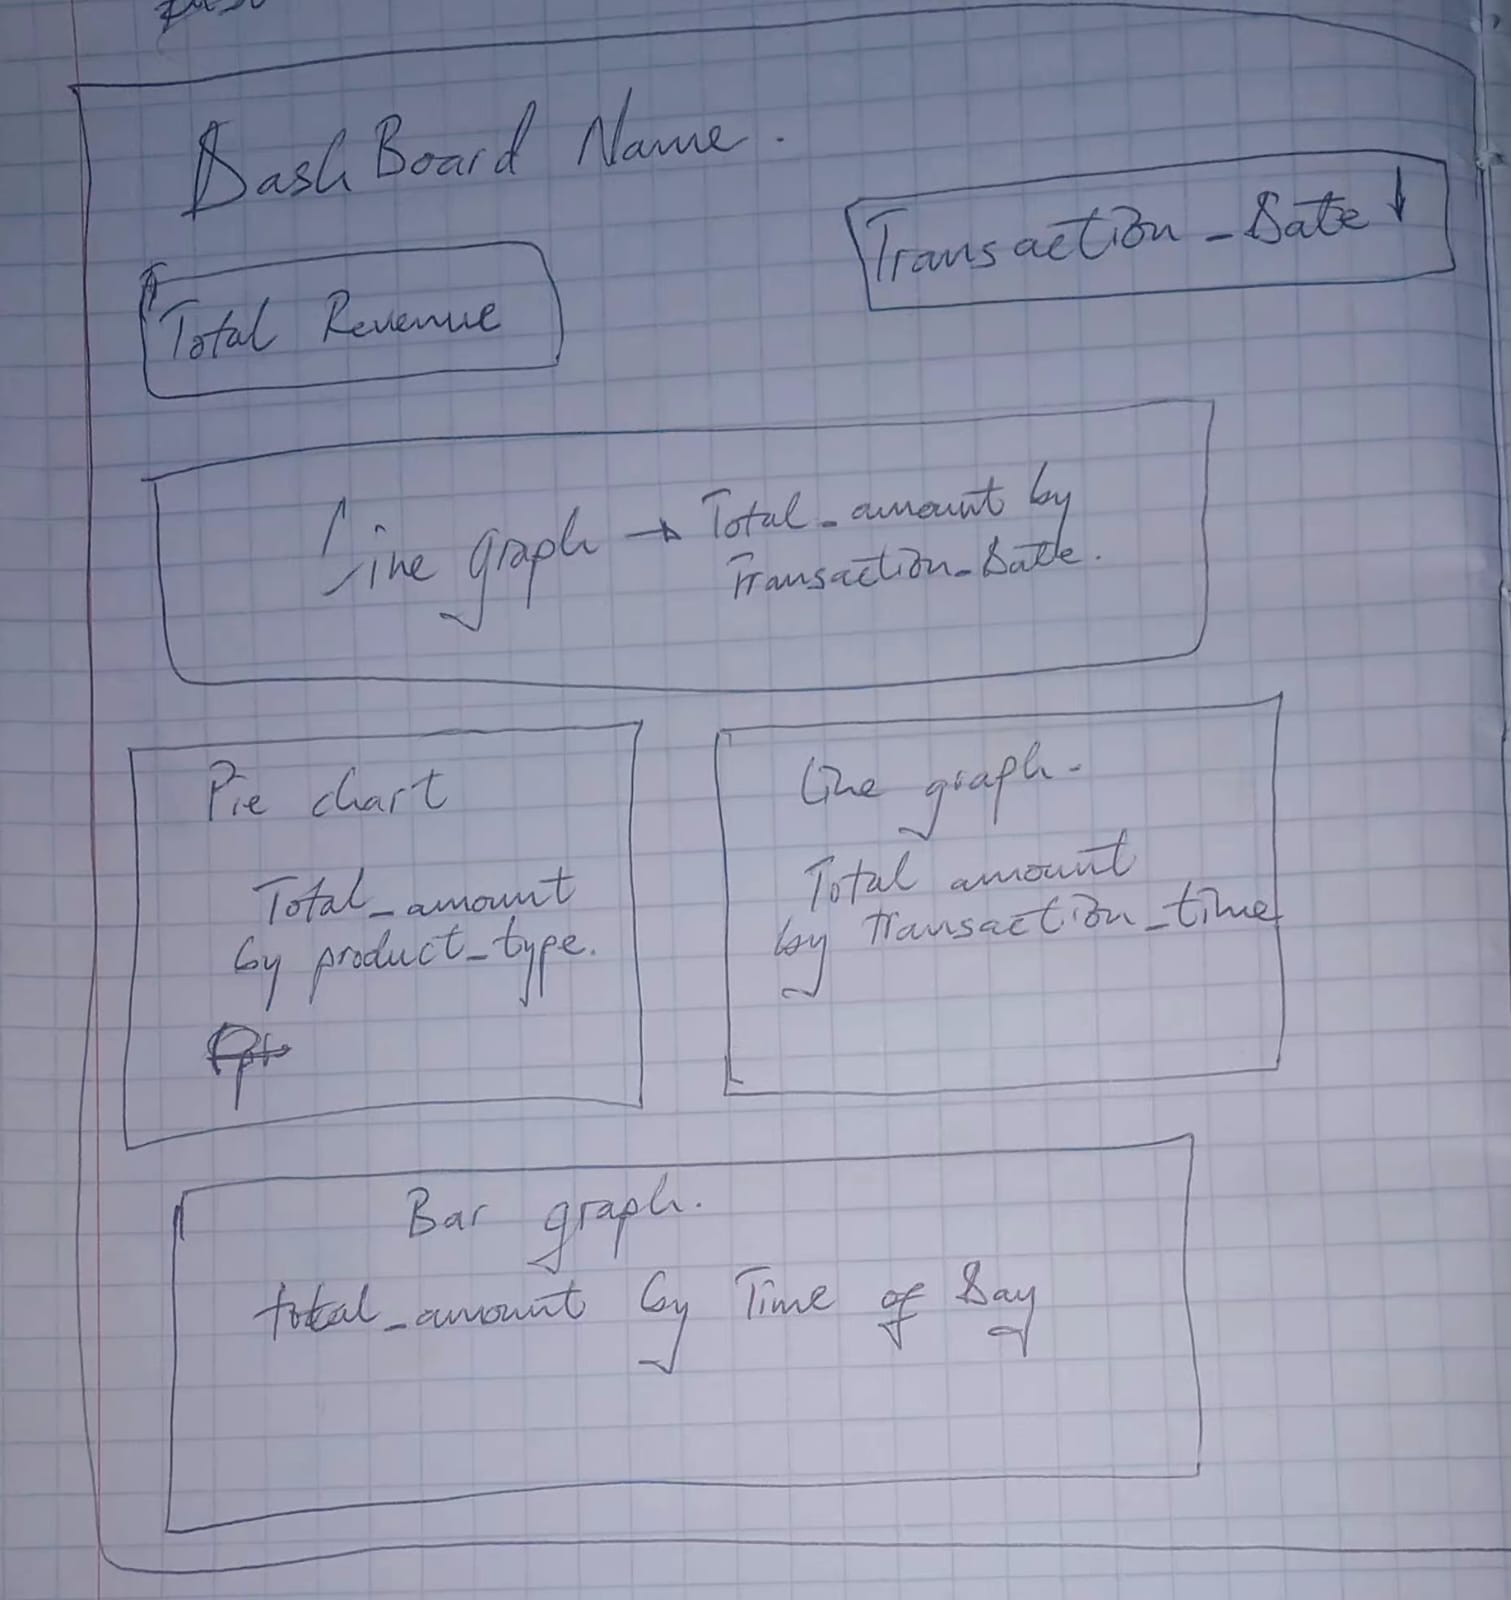 DashBoard Name.
Transaction_Date ↓
Total Revenue
Line graph → Total_amount by
Transaction_Date.
Pie chart
Total_amount
by product_type.
Line graph.
Total amount
by transaction_time
Bar graph.
total_amount by Time of Day